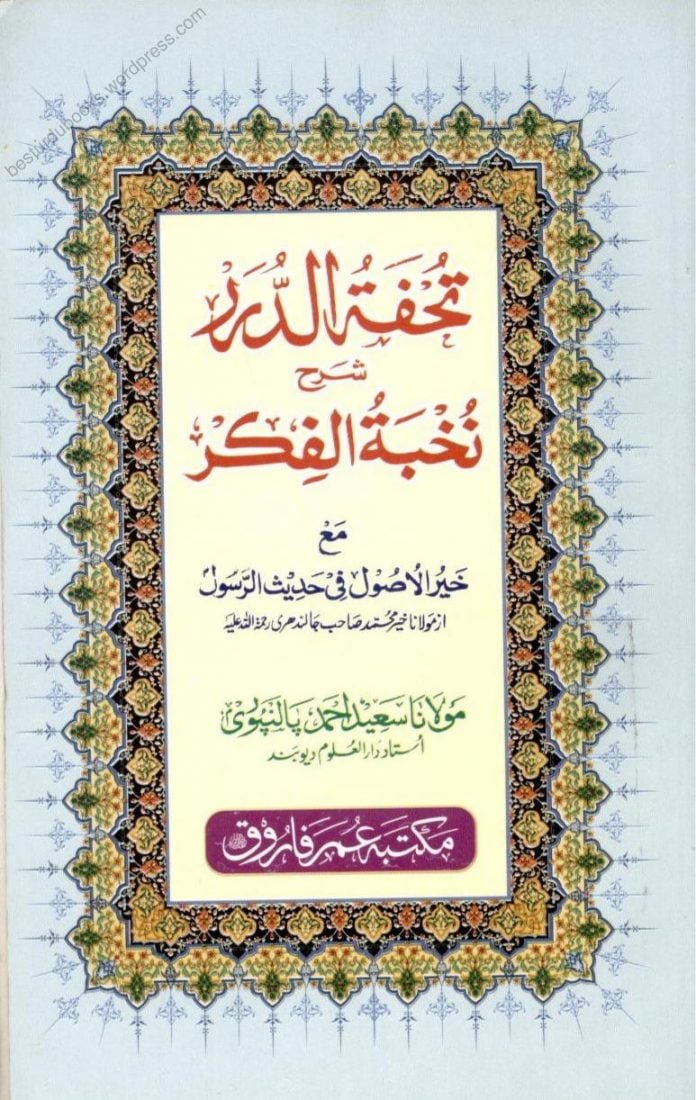 besturdubooks.wordpress.com
تُحْفَةُ الدُّرَر
شرح
نُخْبَةُ الْفِكَر
مَعْ
خَيْرُ الْاُصُوْل فِیْ حَدِيْثِ الرَّسُوْلؐ
از مولانا خیر محمد صاحب جالندھری رحمۃ اللہ علیہ
مولانا سعید احمد پالنپوری
اُستاد دار العلوم دیوبند
مکتبہ عمر فاروق